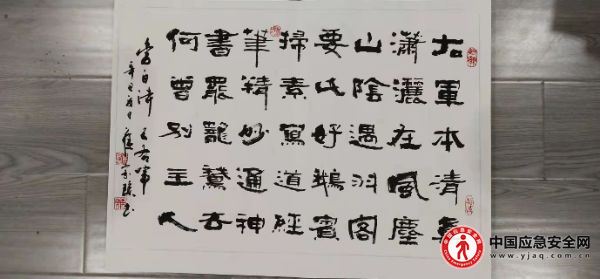 右軍本清真
瀟灑在風塵
山陰遇羽客
要此好鵝賓
掃素寫道經
筆精妙通神
書罷籠鵞去
何曾別主人
白詩 王右軍
中国应急安全网
www.yjaq.com.cn